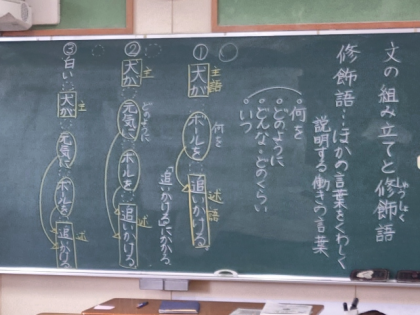 文の組み立てと修飾語
しゅうしょく
修飾語…ほかの言葉をくわしく
説明する働きの言葉。
・何を
・どのように
・どんな・どのくらい
・いつ
① 犬が ボールを 追いかける。
主語
何を
述語
追いかけるにかかる。
② 犬が 元気に ボールを 追いかける。
主
どのように
述
③ 白い 犬が 元気に ボールを 追いかける。
主
述